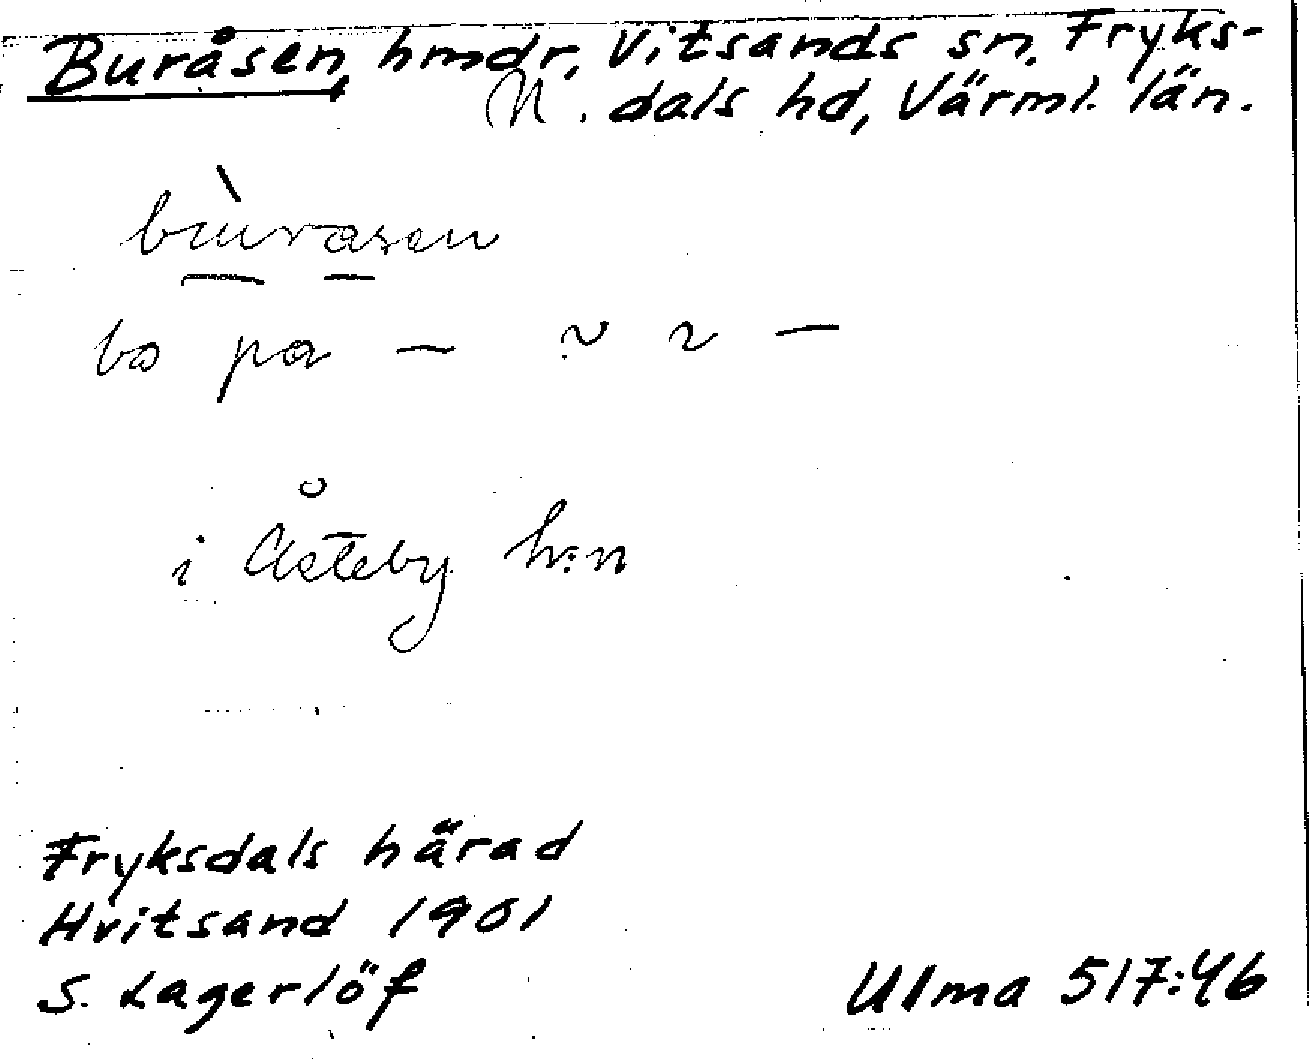 Buråsen, hmdr, Vitsands sn, Fryks-
N. dals hd, Värml. län.
bo pa — ~ ~ —
i Åsteby h:n
Fryksdals härad
Hvitsand 1901
S. Lagerlöf
Ulma 517:46